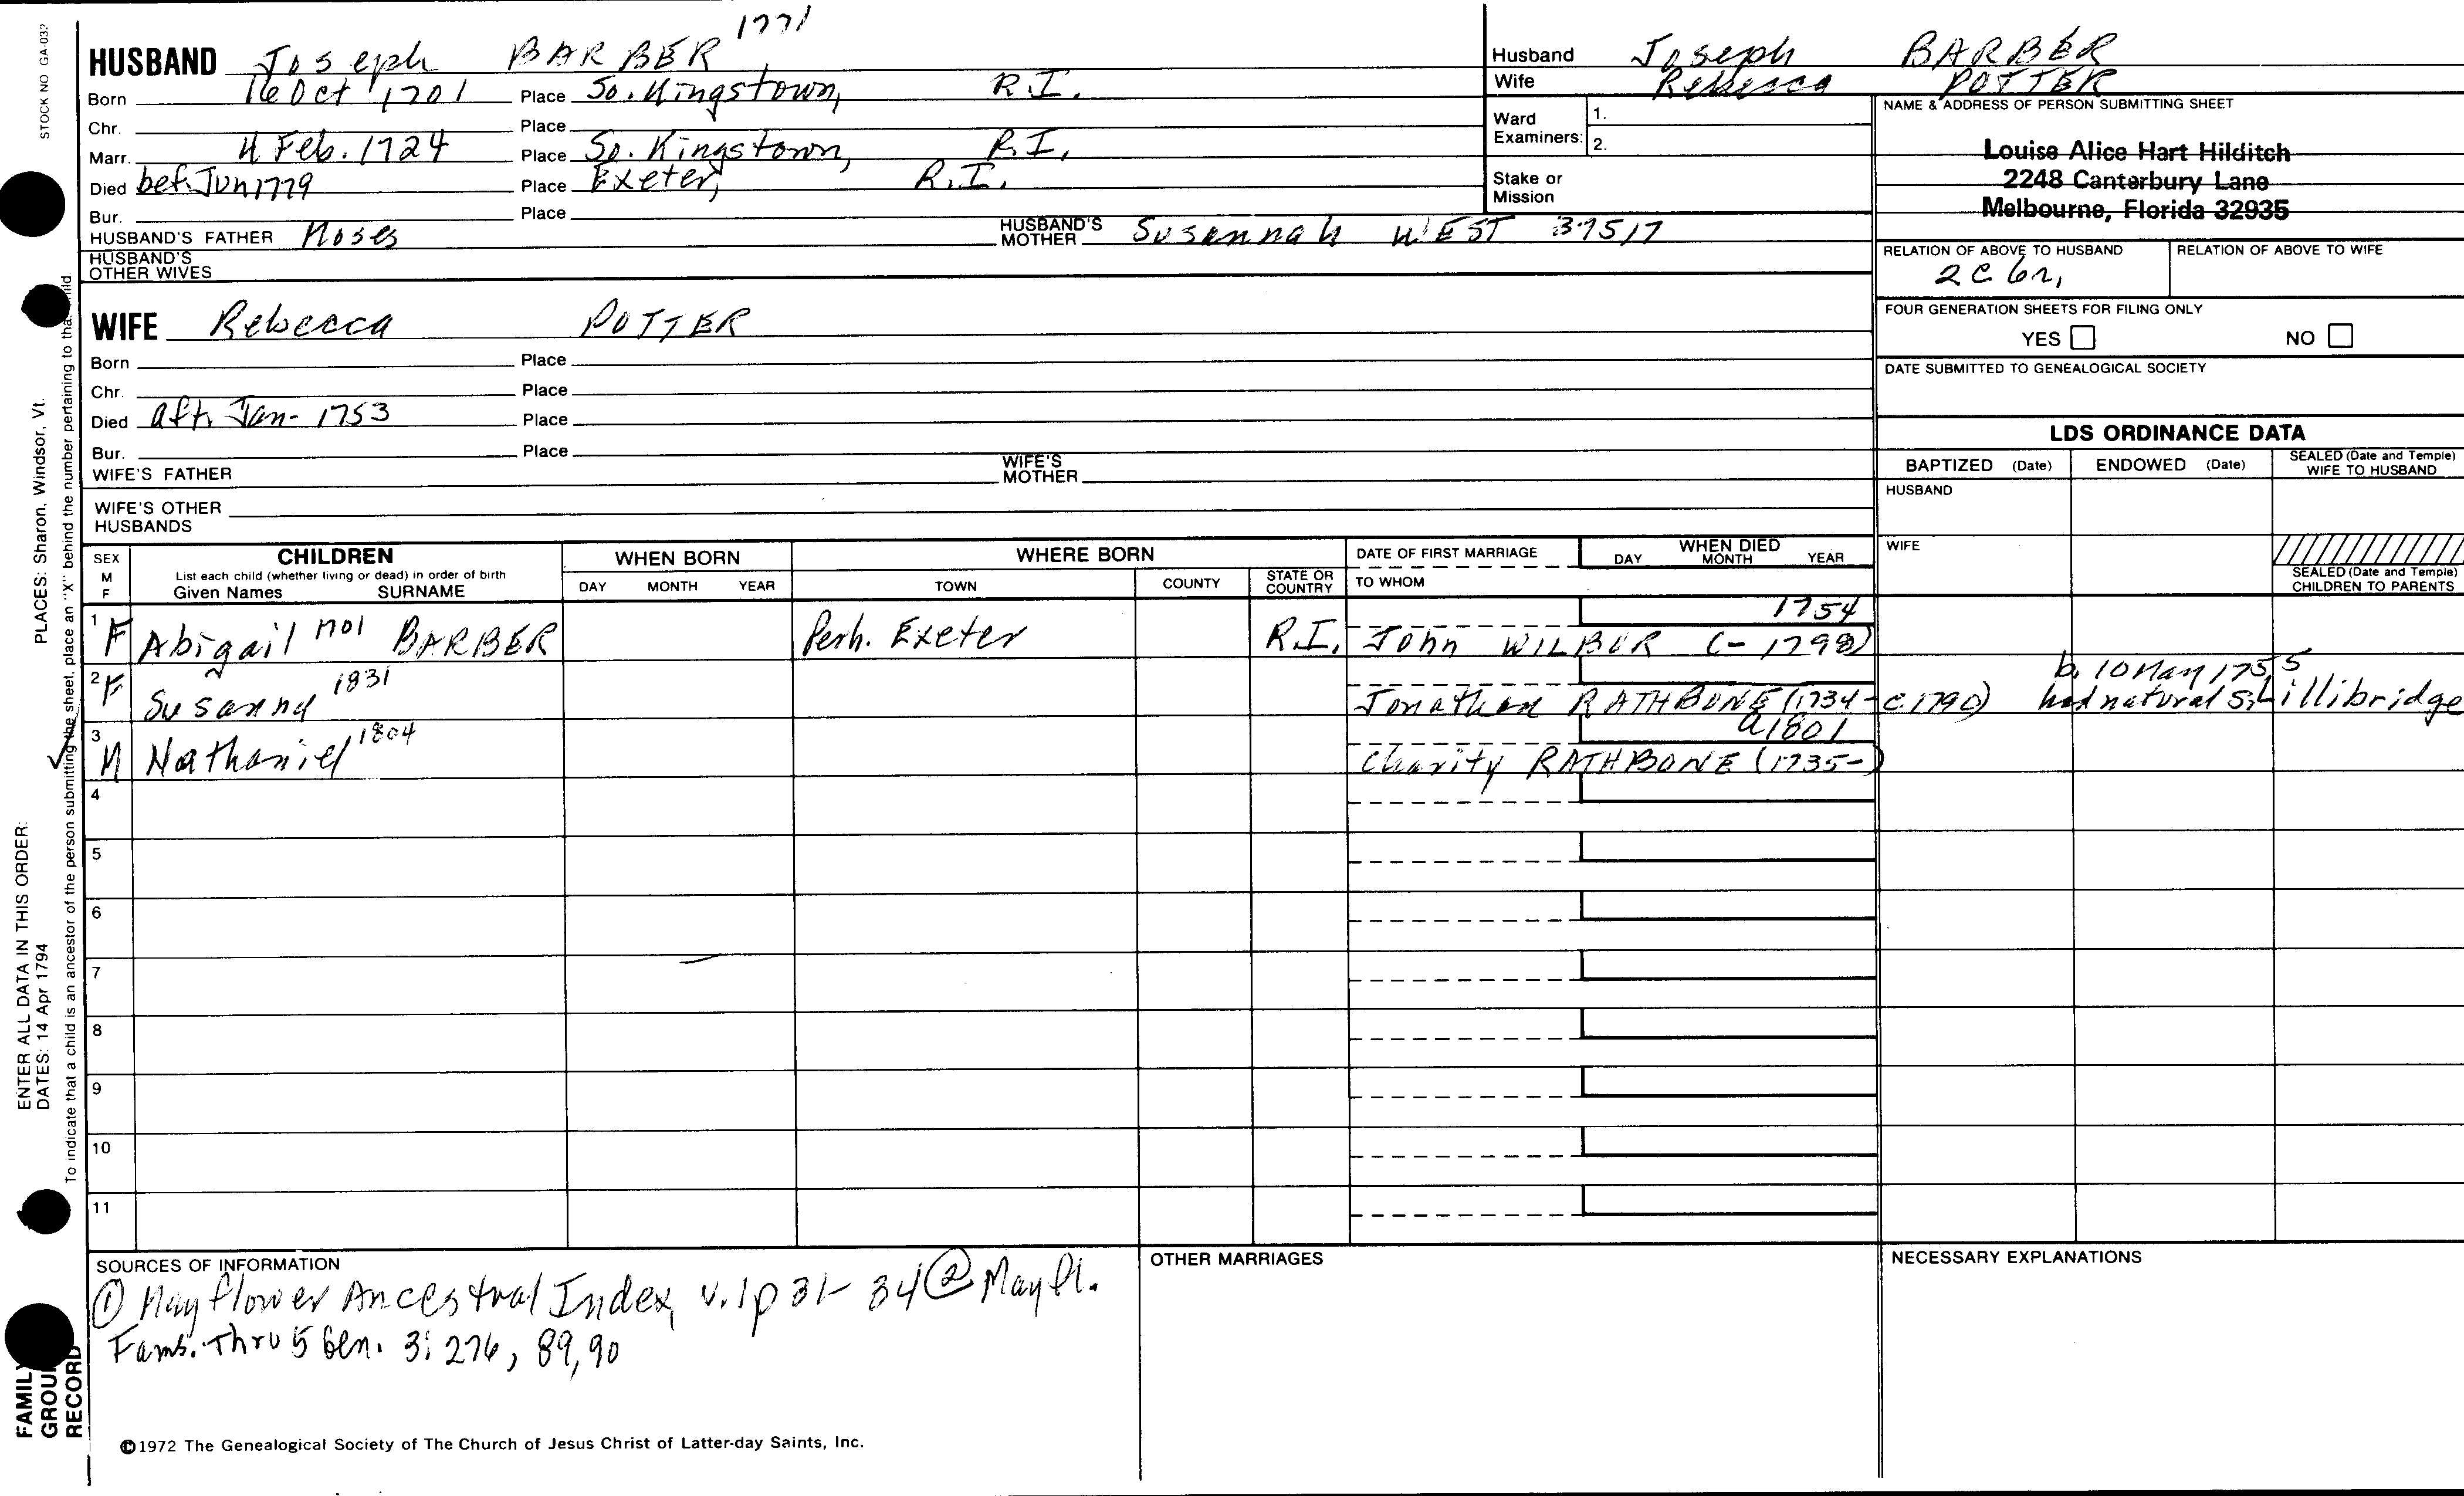 STOCK NO GA-03
1771
HUSBAND Joseph BARBER
Born 16 Oct 1701 Place So. Kingstown, R.I.
Chr. Place
Marr. 4 Feb. 1724 Place So. Kingstown, R.I.
Died bef. Jun 1779 Place Exeter, R.I.
Bur. Place
HUSBAND'S FATHER Moses HUSBAND'S MOTHER Susannah WEST 37517
HUSBAND'S OTHER WIVES
WIFE Rebecca POTTER
Born Place
Chr. Place
Died aft. Jan- 1753 Place
Bur. Place
WIFE'S FATHER WIFE'S MOTHER
WIFE'S OTHER HUSBANDS
Husband Joseph BARBER
Wife Rebecca POTTER
Ward Examiners: 1.
2.
Stake or Mission
NAME & ADDRESS OF PERSON SUBMITTING SHEET
Louise Alice Hart Hilditch
2248 Canterbury Lane
Melbourne, Florida 32935
RELATION OF ABOVE TO HUSBAND RELATION OF ABOVE TO WIFE
2C 6r,
FOUR GENERATION SHEETS FOR FILING ONLY
YES NO
DATE SUBMITTED TO GENEALOGICAL SOCIETY
LDS ORDINANCE DATA
BAPTIZED (Date) ENDOWED (Date) SEALED (Date and Temple) WIFE TO HUSBAND
HUSBAND
WIFE
SEALED (Date and Temple) CHILDREN TO PARENTS
SEX M F CHILDREN WHEN BORN WHERE BORN DATE OF FIRST MARRIAGE WHEN DIED
List each child (whether living or dead) in order of birth
Given Names SURNAME DAY MONTH YEAR TOWN COUNTY STATE OR COUNTRY TO WHOM DAY MONTH YEAR
1754
1 F Abigail BARBER Perh. Exeter R.I. John WILBUR (- 1798)
b. 10 May 1755
2 F Susanna 1831 Jonathan RATHBONE (1734-c.1790) had natural s. Lillibridge
a1801
3 M Nathaniel 1804 Charity RATHBONE (1735-)
4
5
6
7
8
9
10
11
SOURCES OF INFORMATION
① Mayflower Ancestral Index, v.1 p 31-34 ② Mayfl.
Fams. Thru 5 Gen. 3: 276, 89, 90
OTHER MARRIAGES
NECESSARY EXPLANATIONS
©1972 The Genealogical Society of The Church of Jesus Christ of Latter-day Saints, Inc.
FAMILY GROUP RECORD
ENTER ALL DATA IN THIS ORDER:
DATES: 14 Apr 1794
PLACES: Sharon, Windsor, Vt.
To indicate that a child is an ancestor of the person submitting the sheet, place an "X" behind the number pertaining to that child.